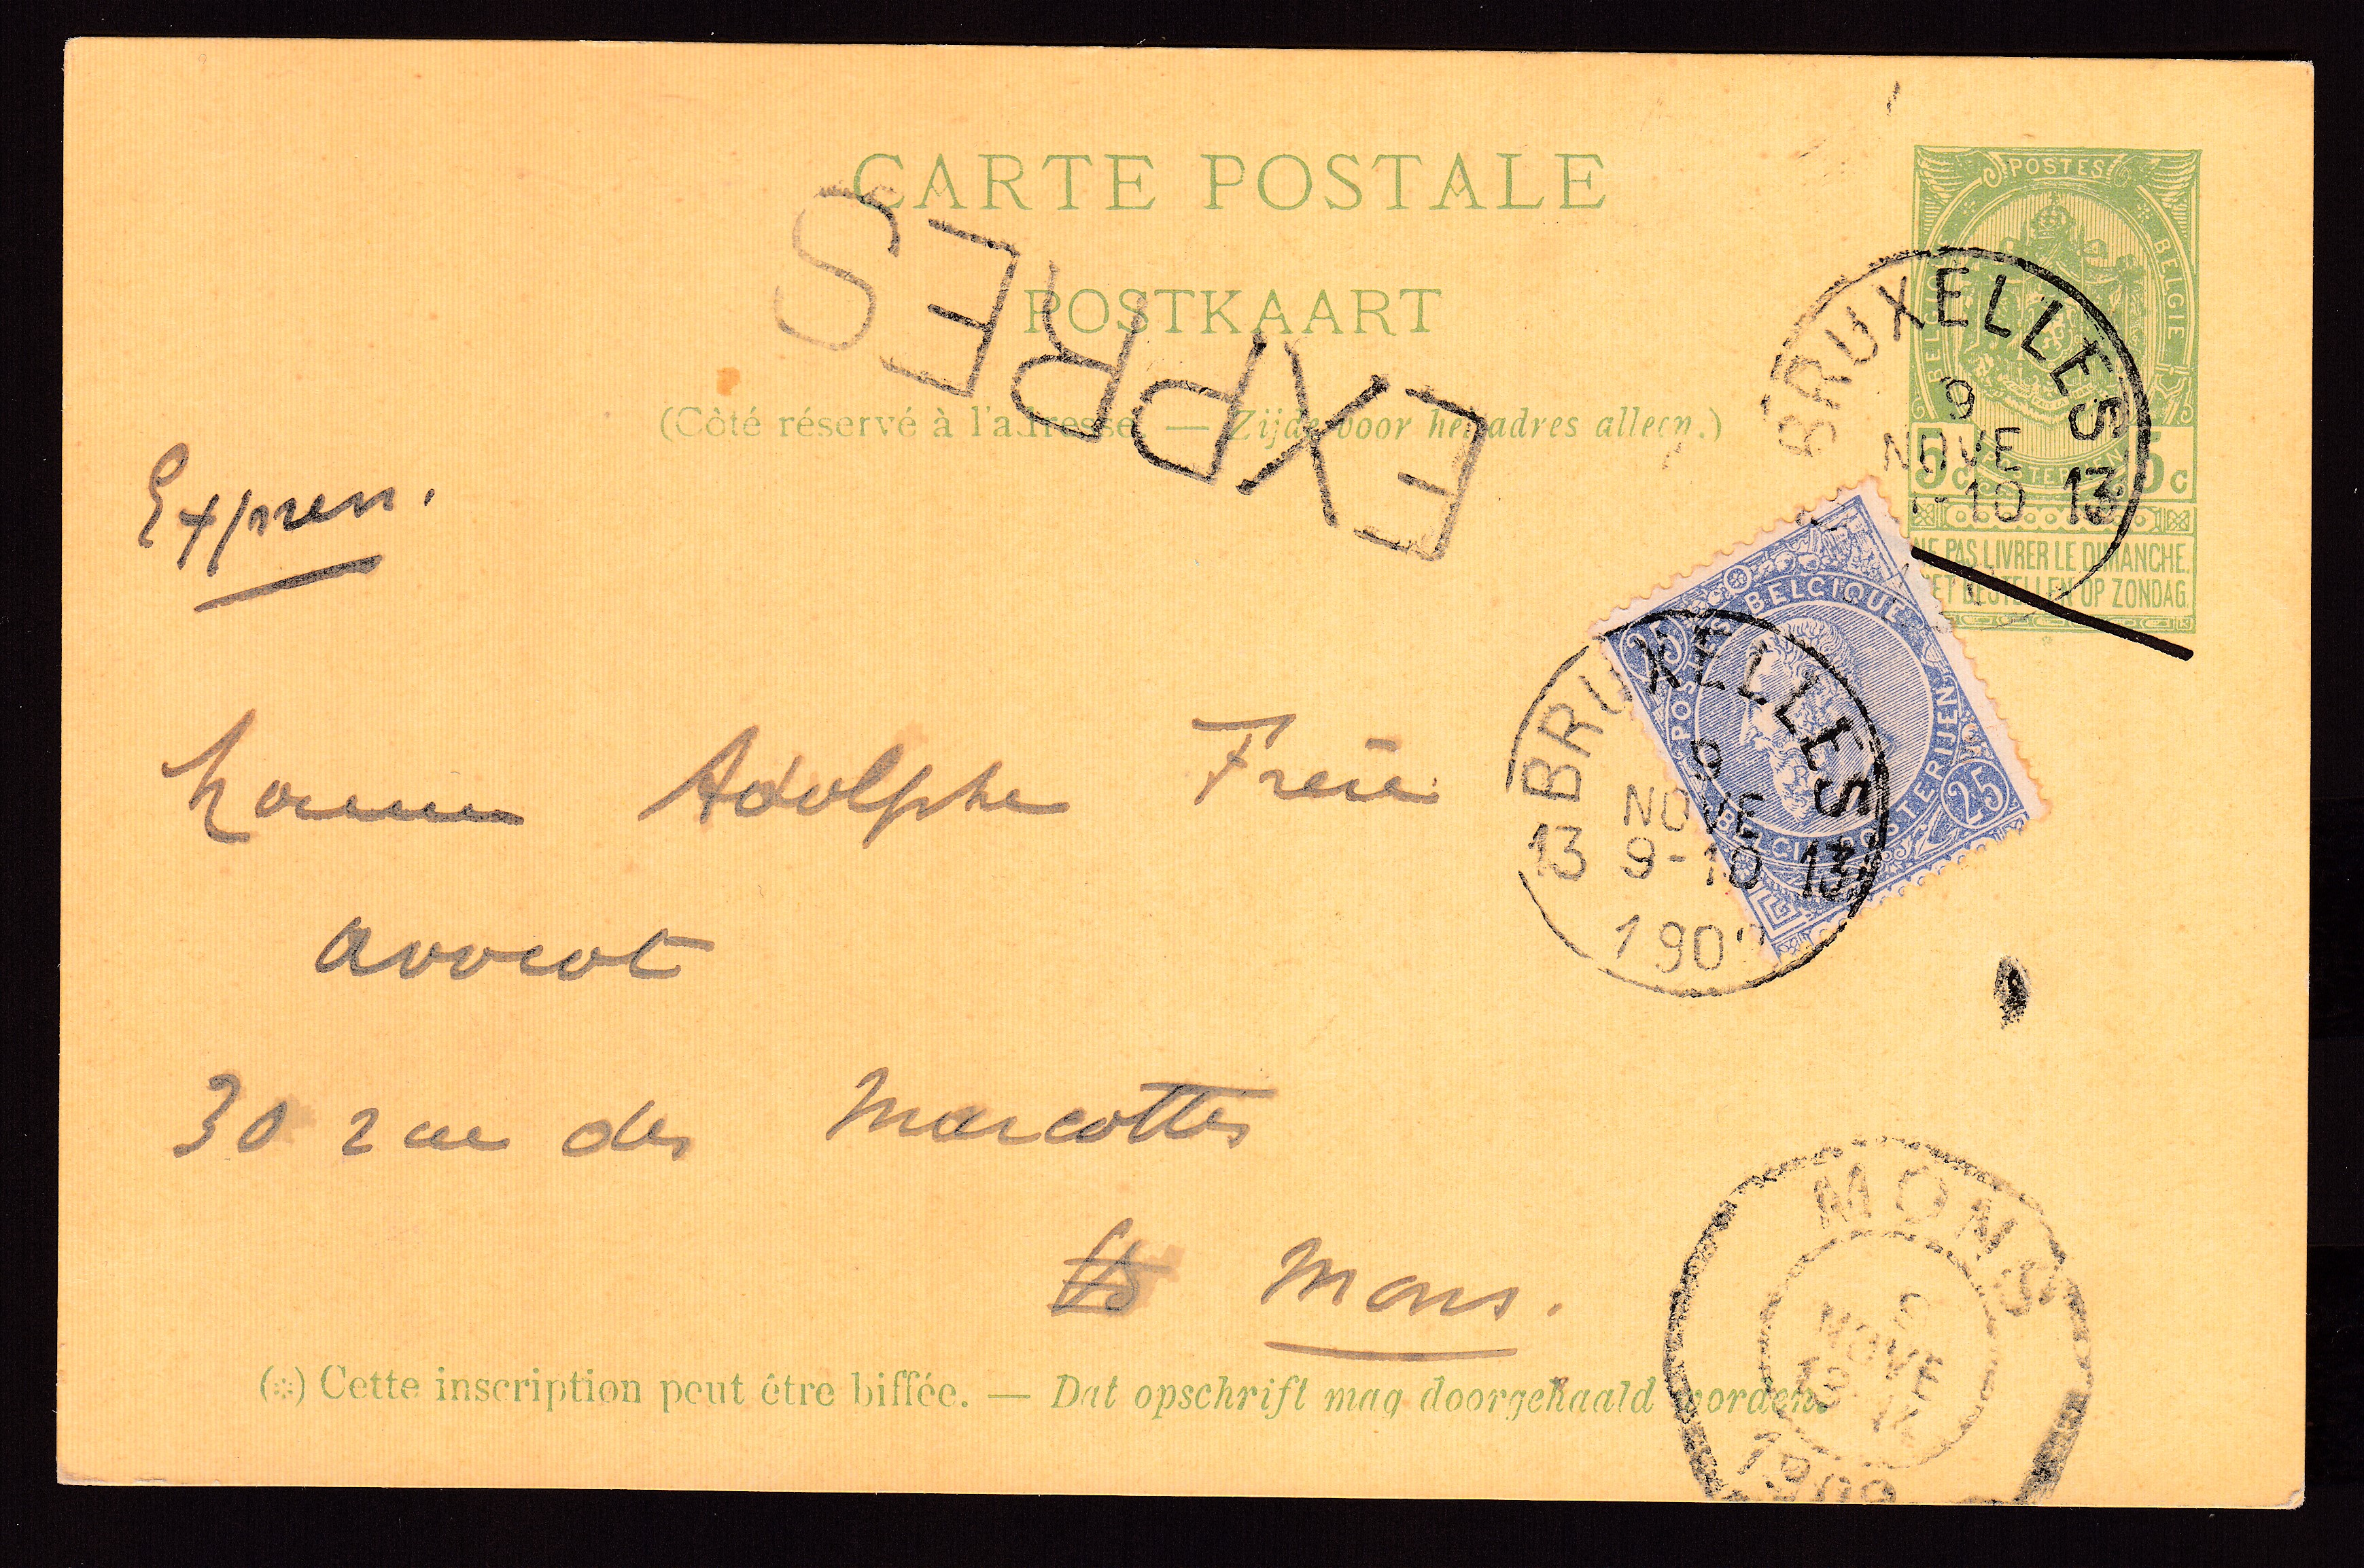 CARTE POSTALE
POSTKAART
(Côté réservé à l'adresse. — Zijde voor het adres alleen.)
EXPRES
POSTES
BELGIQUE
BELGIE
5c 5c
NE PAS LIVRER LE DIMANCHE.
NIET BESTELLEN OP ZONDAG.
BRUXELLES
9
NOVE
-10 13
Express.
POSTES BELGIQUE
25
BELGIË POSTERIJEN
25
BRUXELLES
9
NOVE
13 9-10 13
190
Monsieur Adolphe Frère
avocat
30 rue des Marcottes
Mons.
MONS
9
NOVE
190
(*) Cette inscription peut être biffée. — Dat opschrift mag doorgehaald worden.